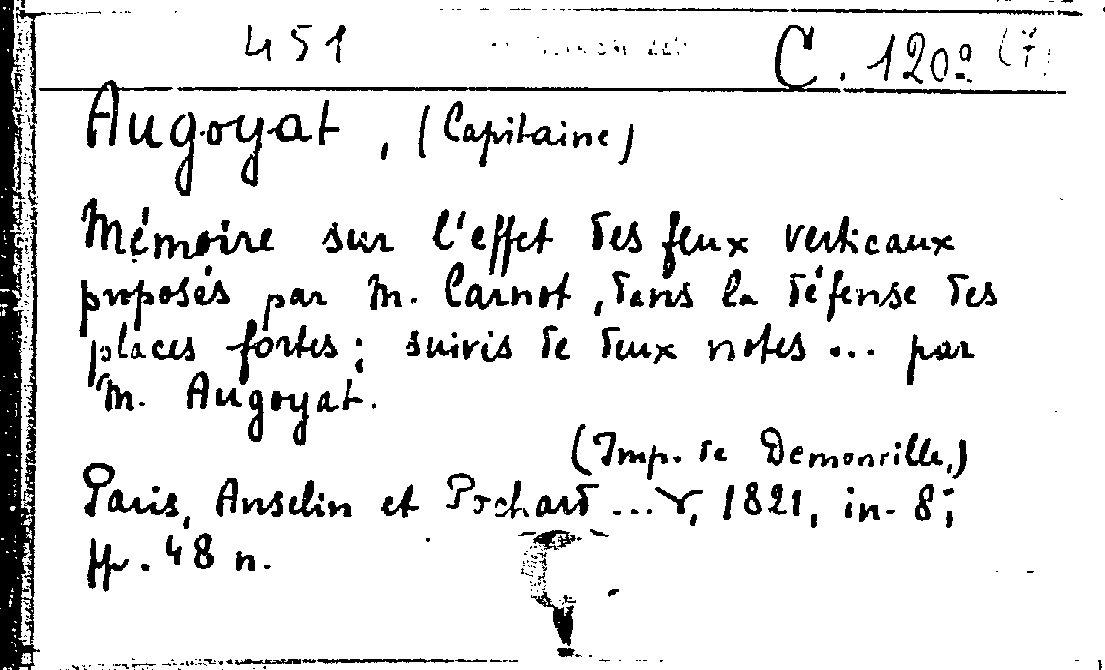 451 C. 120º (7)
Augoyat, (Capitaine)
Mémoire sur l'effet des feux verticaux
proposés par M. Carnot, dans la défense des
places fortes; suivis de deux notes... par
M. Augoyat.
(Imp. de Demonville,)
Paris, Anselin et Pochard... , 1821, in-8;
pp. 48 n.